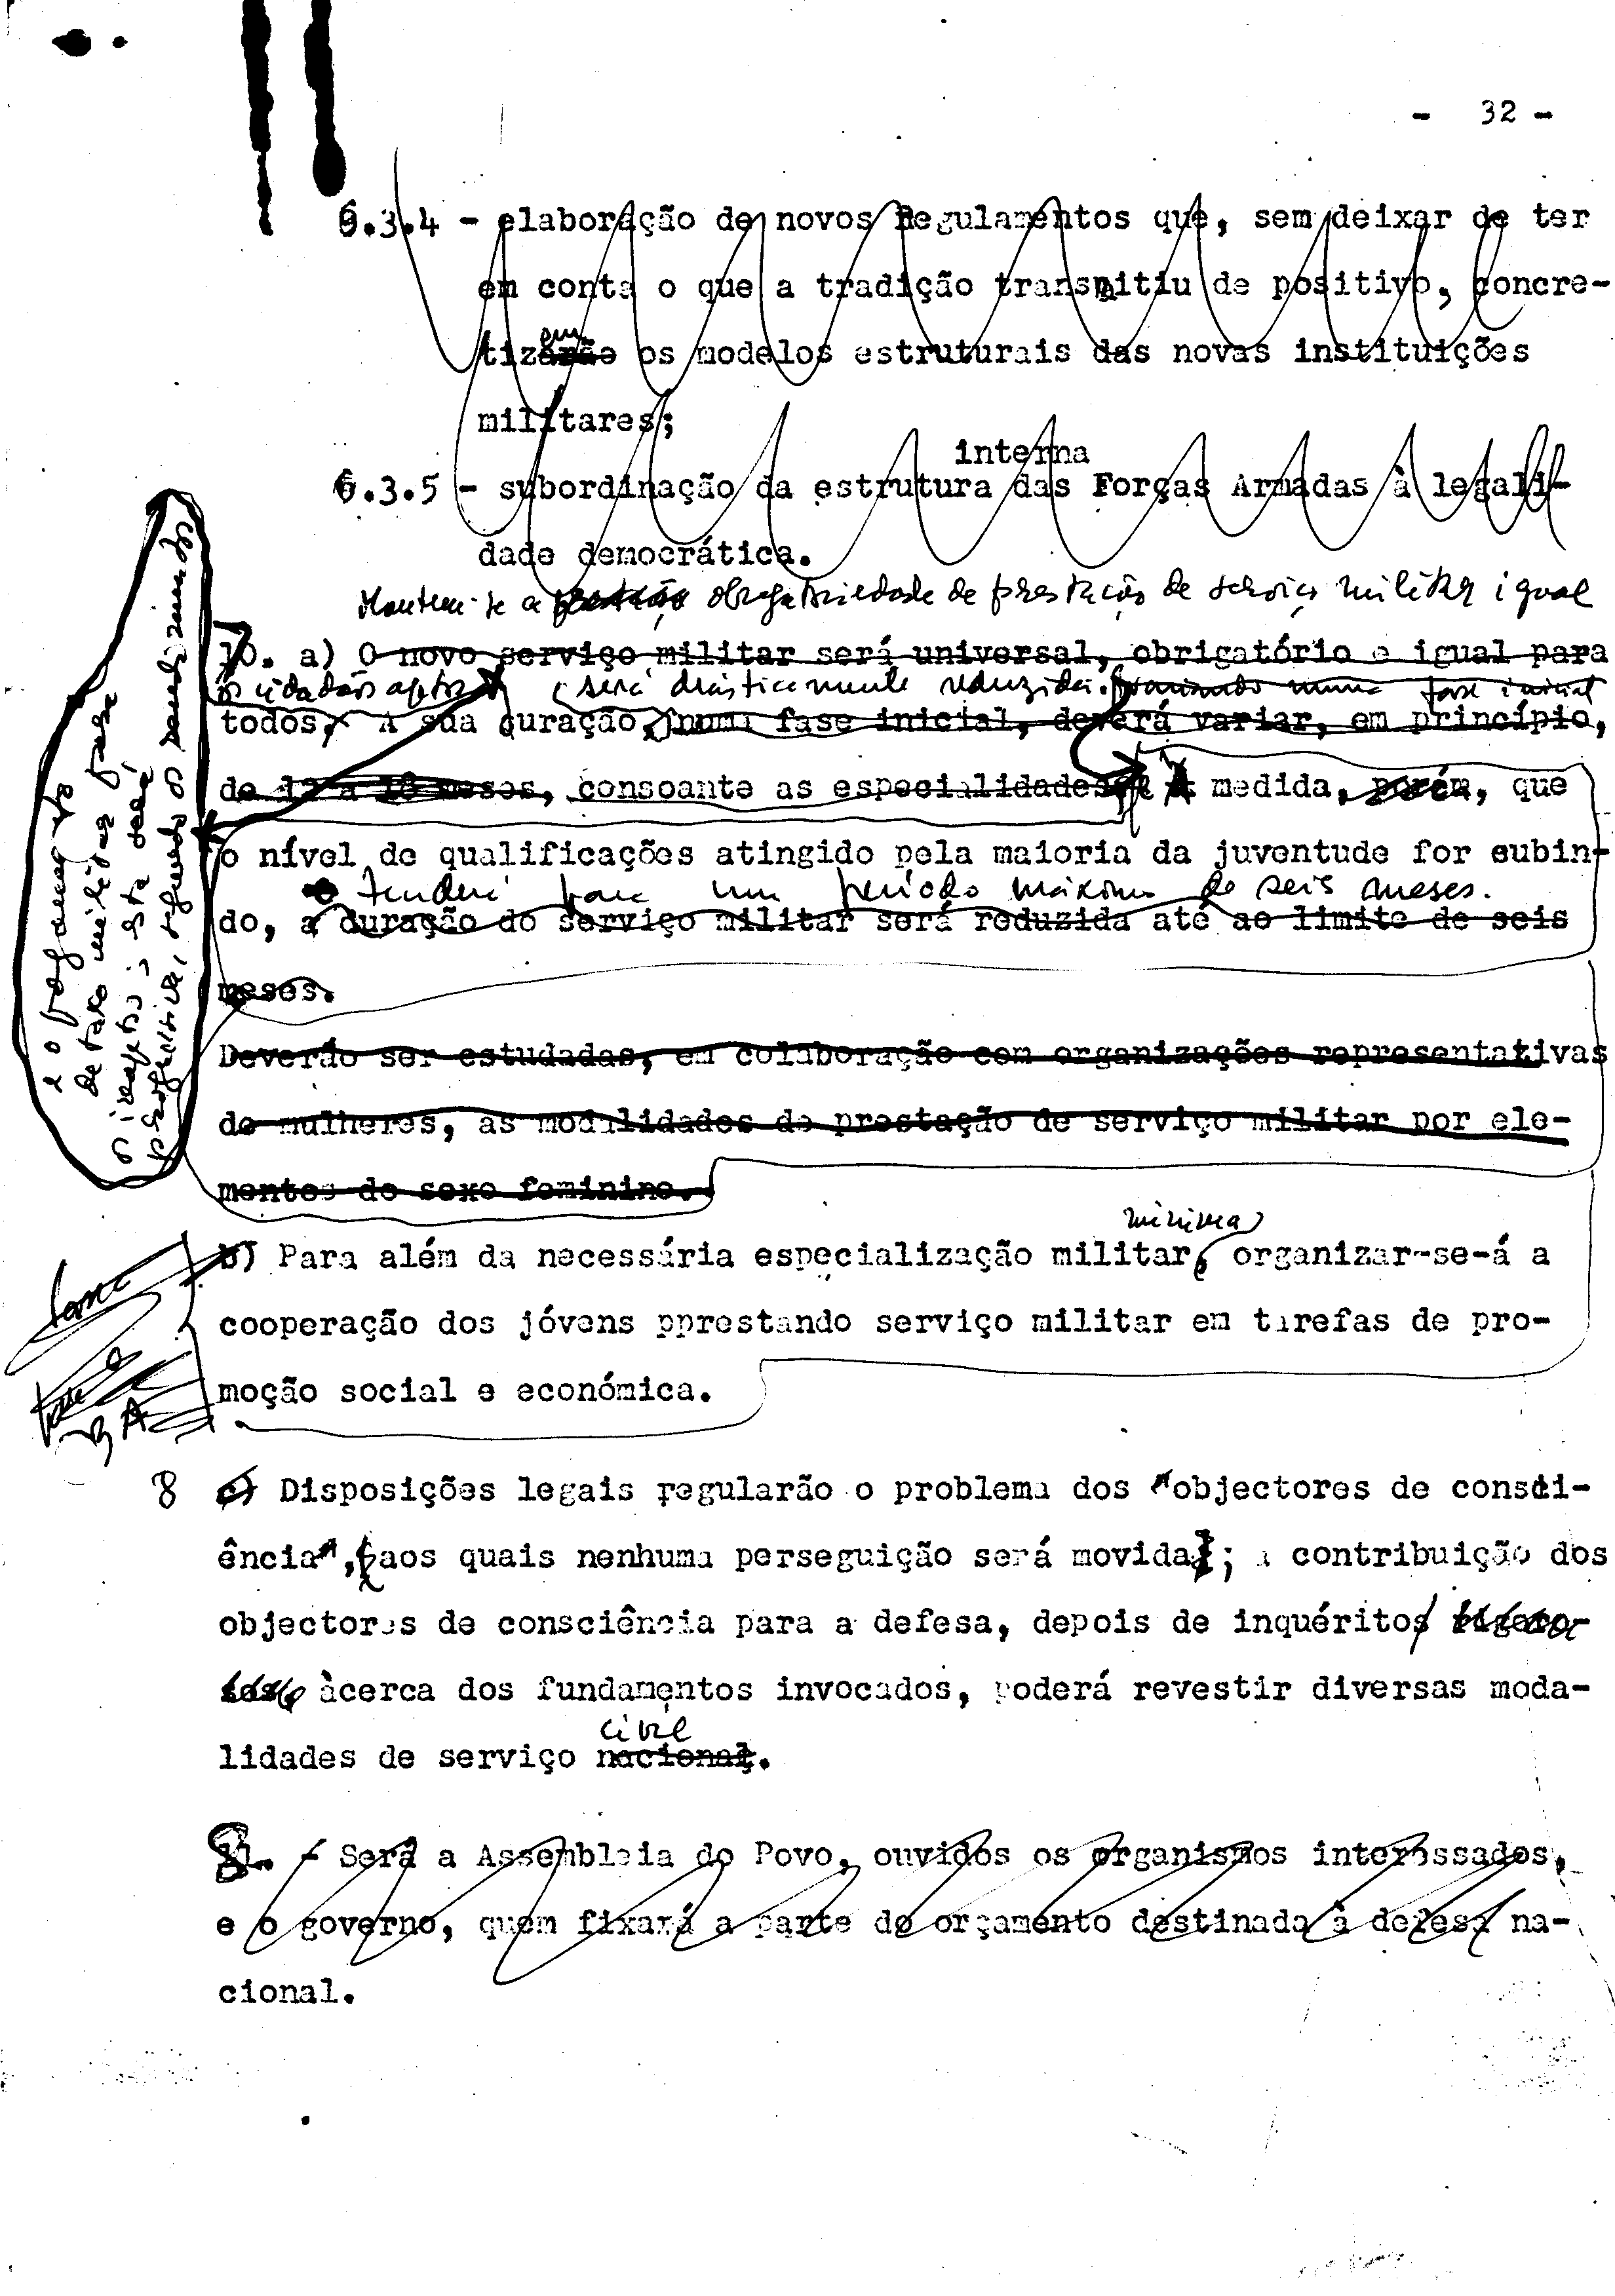 - 32 -
6.3.4 - elaboração de novos Regulamentos que, sem deixar de ter
em conta o que a tradição transmitiu de positivo, concre-
em
tizarão os modelos estruturais das novas instituições
militares;
interna
6.3.5 - subordinação da estrutura das Forças Armadas à legali-
dade democrática.
Mantem-se a obrigatoriedade de prestação de serviço militar igual
10. a) O novo serviço militar será universal, obrigatório e igual para
os cidadãos aptos será drásticamente reduzida. numa fase inicial
todos, A sua duração, numa fase inicial, deverá variar, em princípio,
de 12 a 18 meses, consoante as especialidades A medida, porém, que
o nível de qualificações atingido pela maioria da juventude for subin-
tenderá para um período máximo de seis meses.
do, a duração do serviço militar será reduzida até ao limite de seis
meses.
Deverão ser estudadas, em colaboração com organizações representativas
de mulheres, as modalidades de prestação de serviço militar por ele-
mentos do sexo feminino.
e o pagamento
de taxa militar pelos
inaptos; esta será
progressiva, segundo os rendimentos
mínima
b) Para além da necessária especialização militar, organizar-se-á a
cooperação dos jóvens pprestando serviço militar em tarefas de pro-
moção social e económica.
8 c) Disposições legais regularão o problema dos "objectores de consci-
ência", aos quais nenhuma perseguição será movida; a contribuição dos
objectores de consciência para a defesa, depois de inquéritos rigoro-
sos àcerca dos fundamentos invocados, poderá revestir diversas moda-
civil
lidades de serviço nacional.
11. - Será a Assembleia do Povo, ouvidos os organismos interessados,
e o governo, quem fixará a parte do orçamento destinada à defesa na-
cional.